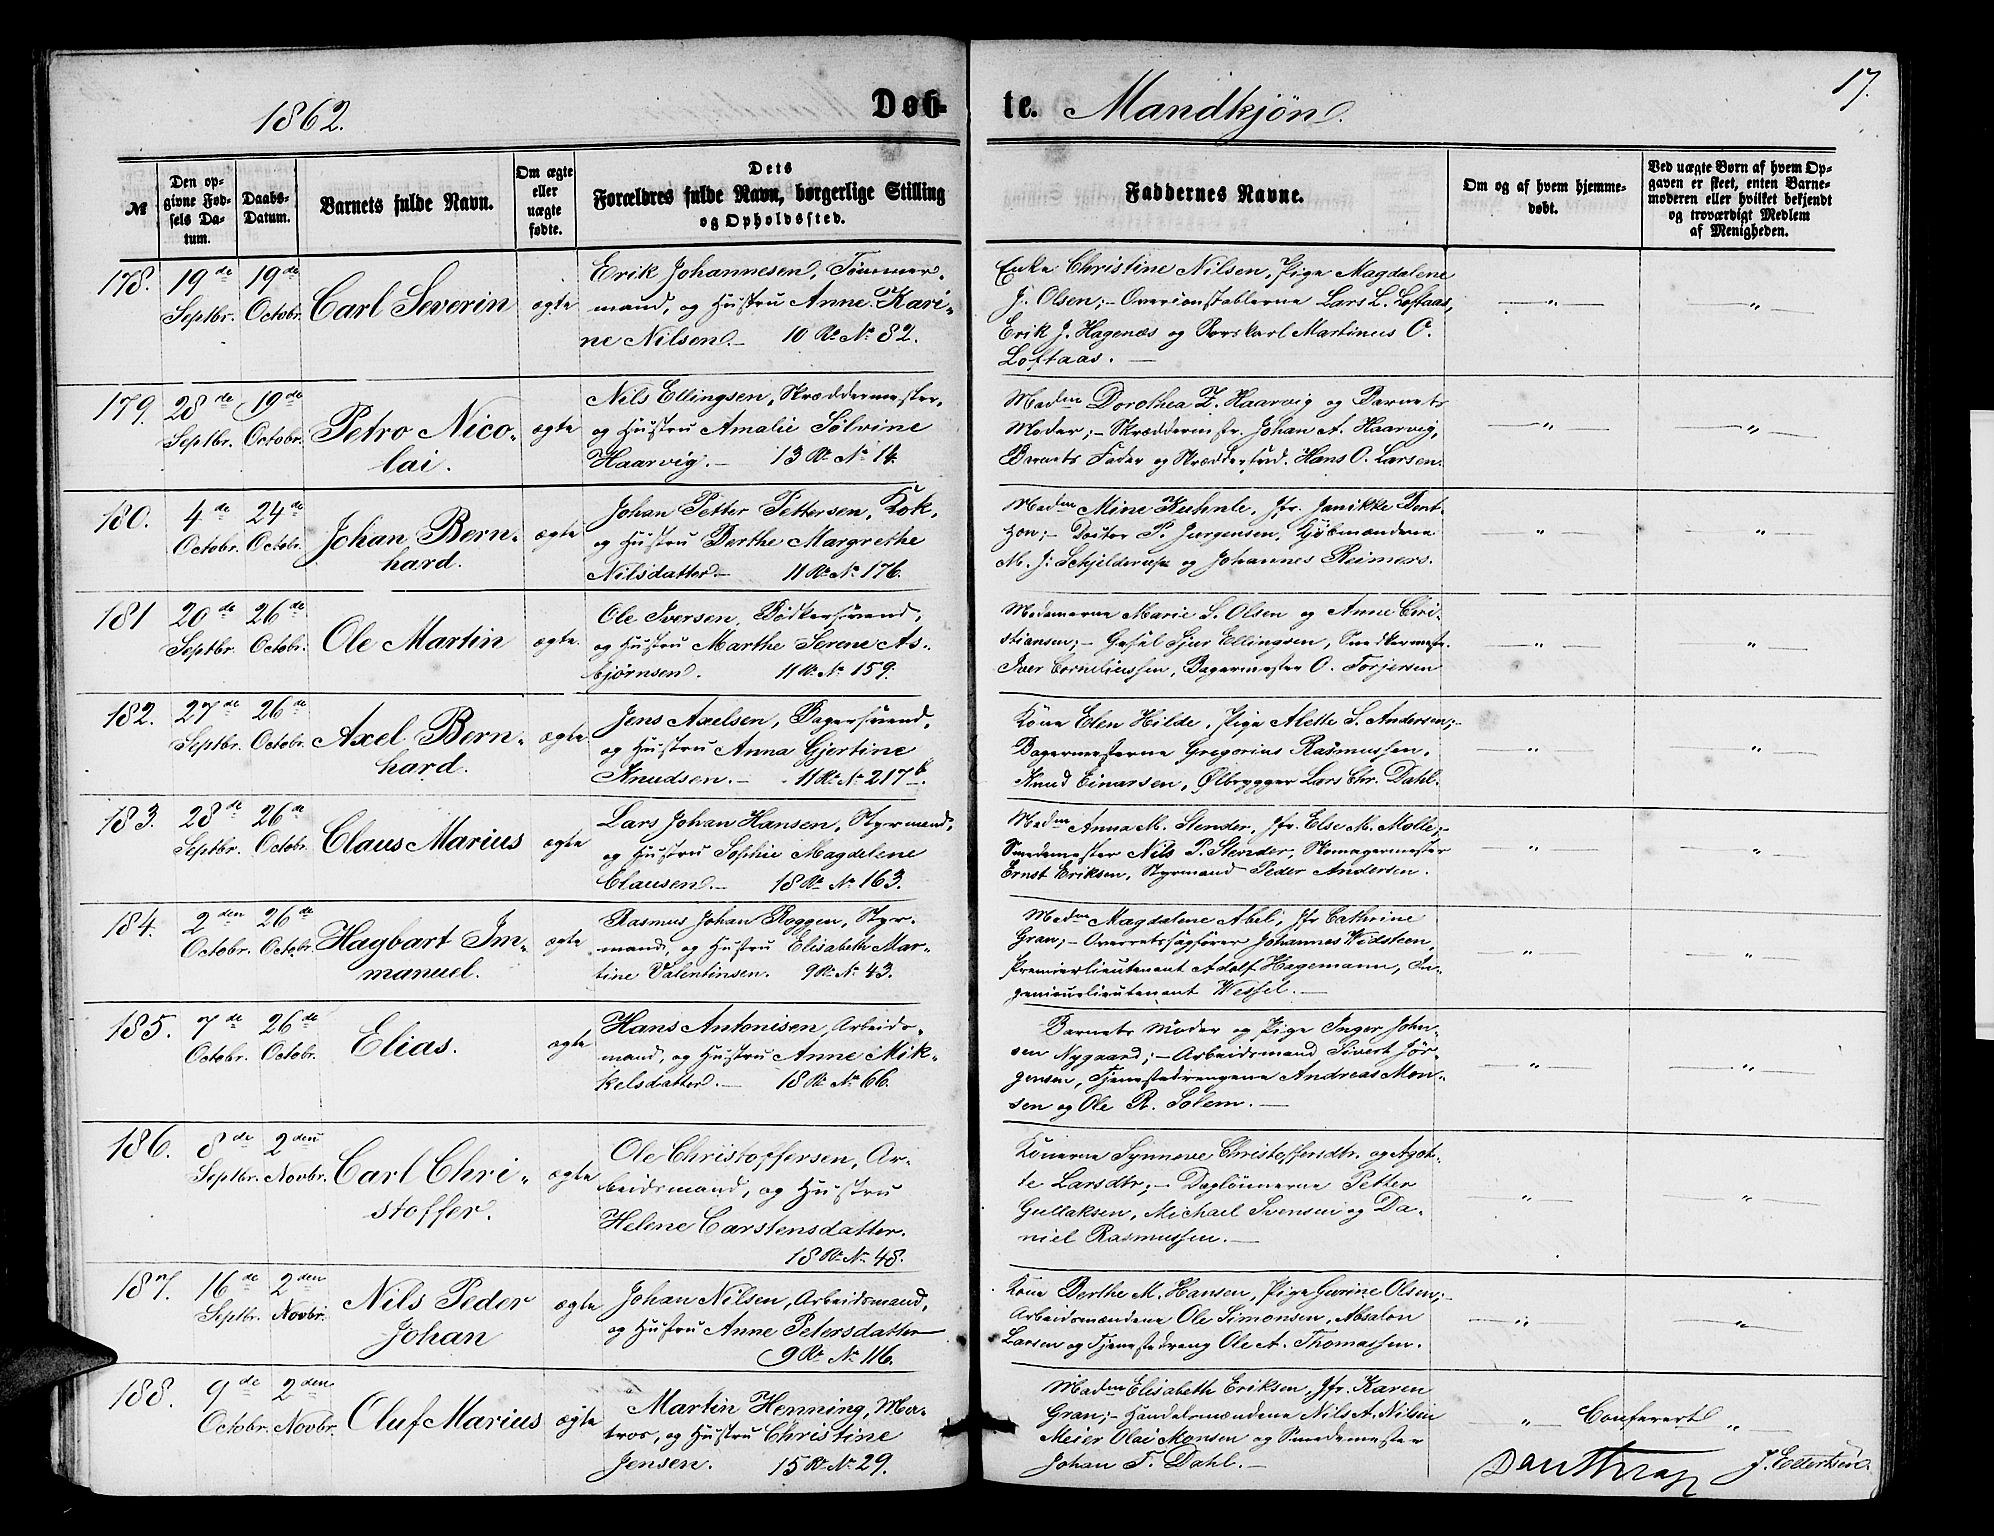 1862.
Døb-
te. Mandkjøn.
17.
№
Den op-
givne Fød-
sels Da-
tum.
Daabs-
Datum.
Barnets fulde Navn.
Om ægte
eller
uægte
fødte.
Dets
Forældres fulde Navn, borgerlige Stilling
og Opholdssted.
Faddernes Navne.
Om og af hvem hjemme-
døbt.
Ved uægte Børn af hvem Op-
gaven er skeet, enten Barne-
moderen eller hvilket bekjendt
og troværdigt Medlem
af Menigheden.
178. 19de Septbr. 19de Octobr. Carl Severin ægte
Erik Johannesen, Tømmer-
mand, og Hustru Anne Kari-
ne Nilsen. — 10 R. No 82.
Enke Christine Nilsen, Pige Magdalene
J. Olsen; — Overconstablerne Lars L. Loftaas,
Erik J. Hagenæs og Martinus O.
Loftaas. —
— " — — " —
179. 28de Septbr. 19de Octobr. Petro Nico-
lai. ægte
Nils Ellingsen, Skræddermester,
og Hustru Amalie Sølvine
Haarvig. — 13 R. No 14.
Madm Dorothea Z. Haarvig og Barnets
Moder; — Skræddermstr. Johan A. Haarvig,
Barnets Fader og Skræddersvd. Hans O. Larsen.
— " — — " —
180. 4de Octobr. 24de Octobr. Johan Bern-
hard. ægte
Johan Petter Pettersen, Kok,
og Hustru Berthe Margrethe
Nilsdatter. — 11 R. No 176.
Madm Mine Kuhnle, Jfr. Janikke Bent-
zon; — Doctor P. Jürgensen, Kjøbmændene
M. J. Schjelderup og Johannes Reimers.
— " — — " —
181 20de Septbr. 26de Octobr. Ole Martin ægte.
Ole Iversen, Bødkersvend,
og Hustru Marthe Serene As-
bjørnsen. 11 R. No 159.
Madamerne Marie S. Olsen og Anne Chri-
stiansen; — Gesel Sjur Ellingsen, Snedkermestr.
Iver Corneliussen, Bagermester O. Torjersen
— " — — " —
182. 27de Septbr. 26de Octobr. Axel Bern-
hard. ægte
Jens Axelsen, Bagersvend,
og Hustru Anna Gjertine
Knudsen. — 11 R. No 217b.
Kone Elen Hilde, Pige Alette S. Andersen; —
Bagermesterne Gregorius Rasmussen,
Knud Einarsen, Ølbrygger Lars Chr. Dahl.
— " — — " —
183. 28de Septbr. 26de Octobr. Claus Marius ægte
Lars Johan Hansen, Styrmand,
og Hustru Sophie Magdelene
Clausen. — 18 R. No 163.
Madm Anna M. Stender, Jfr. Else M. Molte; —
Smedemester Nils P. Stender, Skomagermester
Ernst Eriksen, Styrmand Peder Andersen.
— " — — " —
184. 2den Octobr. 26de Octobr. Hagbart Im-
manuel. ægte
Rasmus Johan Roggen, Styr-
mand, og Hustru Elisabeth Mar-
tine Valentinsen. 9 R. No 43.
Madm Magdalene Abel, Jfr Cathrine
Gran; — Overretssagfører Johannes Widsteen,
Premierlieutenant Adolf Hagemann, In-
genieurlieutenant Wessel. —
— " — — " —
185. 7de Octobr. 26de Octobr. Elias. ægte
Hans Antonisen, Arbeids-
mand, og Hustru Anne Mik-
kelsdatter. — 18 R. No 66.
Barnets Moder og Pige Inger John-
sen Nygaard; — Arbeidsmand Sivert Jør-
gensen, Tjenestedrengene Andreas Mon-
sen og Ole R. Solem. —
— " — — " —
186. 8de Septbr. 2den Novbr. Carl Chri-
stoffer. ægte
Ole Christoffersen, Ar-
beidsmand, og Hustru
Helene Carstensdatter.
18 R. No 48.
Konerne Synneve Christoffersdtr. og Agat-
te Larsdtr; — Daglønnerne Petter
Gullaksen, Michael Svensen og Da-
niel Rasmussen. —
— " — — " —
187. 16de Septbr. 2den Novbr. Nils Peder
Johan ægte
Johan Nilsen, Arbeidsmand,
og Hustru Anne Petersdatter
9 R. No 116.
Kone Berthe M. Hansen, Pige Gurine Olsen; —
Arbeidsmændene Ole Simonsen, Absalon
Larsen og Tjenestedreng Ole A. Thomassen.
— " — — " —
188. 9de Octobr. 2den Novbr. Oluf Marius ægte
Martin Henning, Ma-
tros, og Hustru Christine
Jensen. 15 R. No 29.
Madm Elisabeth Eriksen, Jfr. Karen
Gran; — Handelsmændene Nils A. Nilsen
Meier Olai Monsen og Smedemester
Johan T. Dahl. —
" — Confereret " —
Daae
J. Ellertsen.